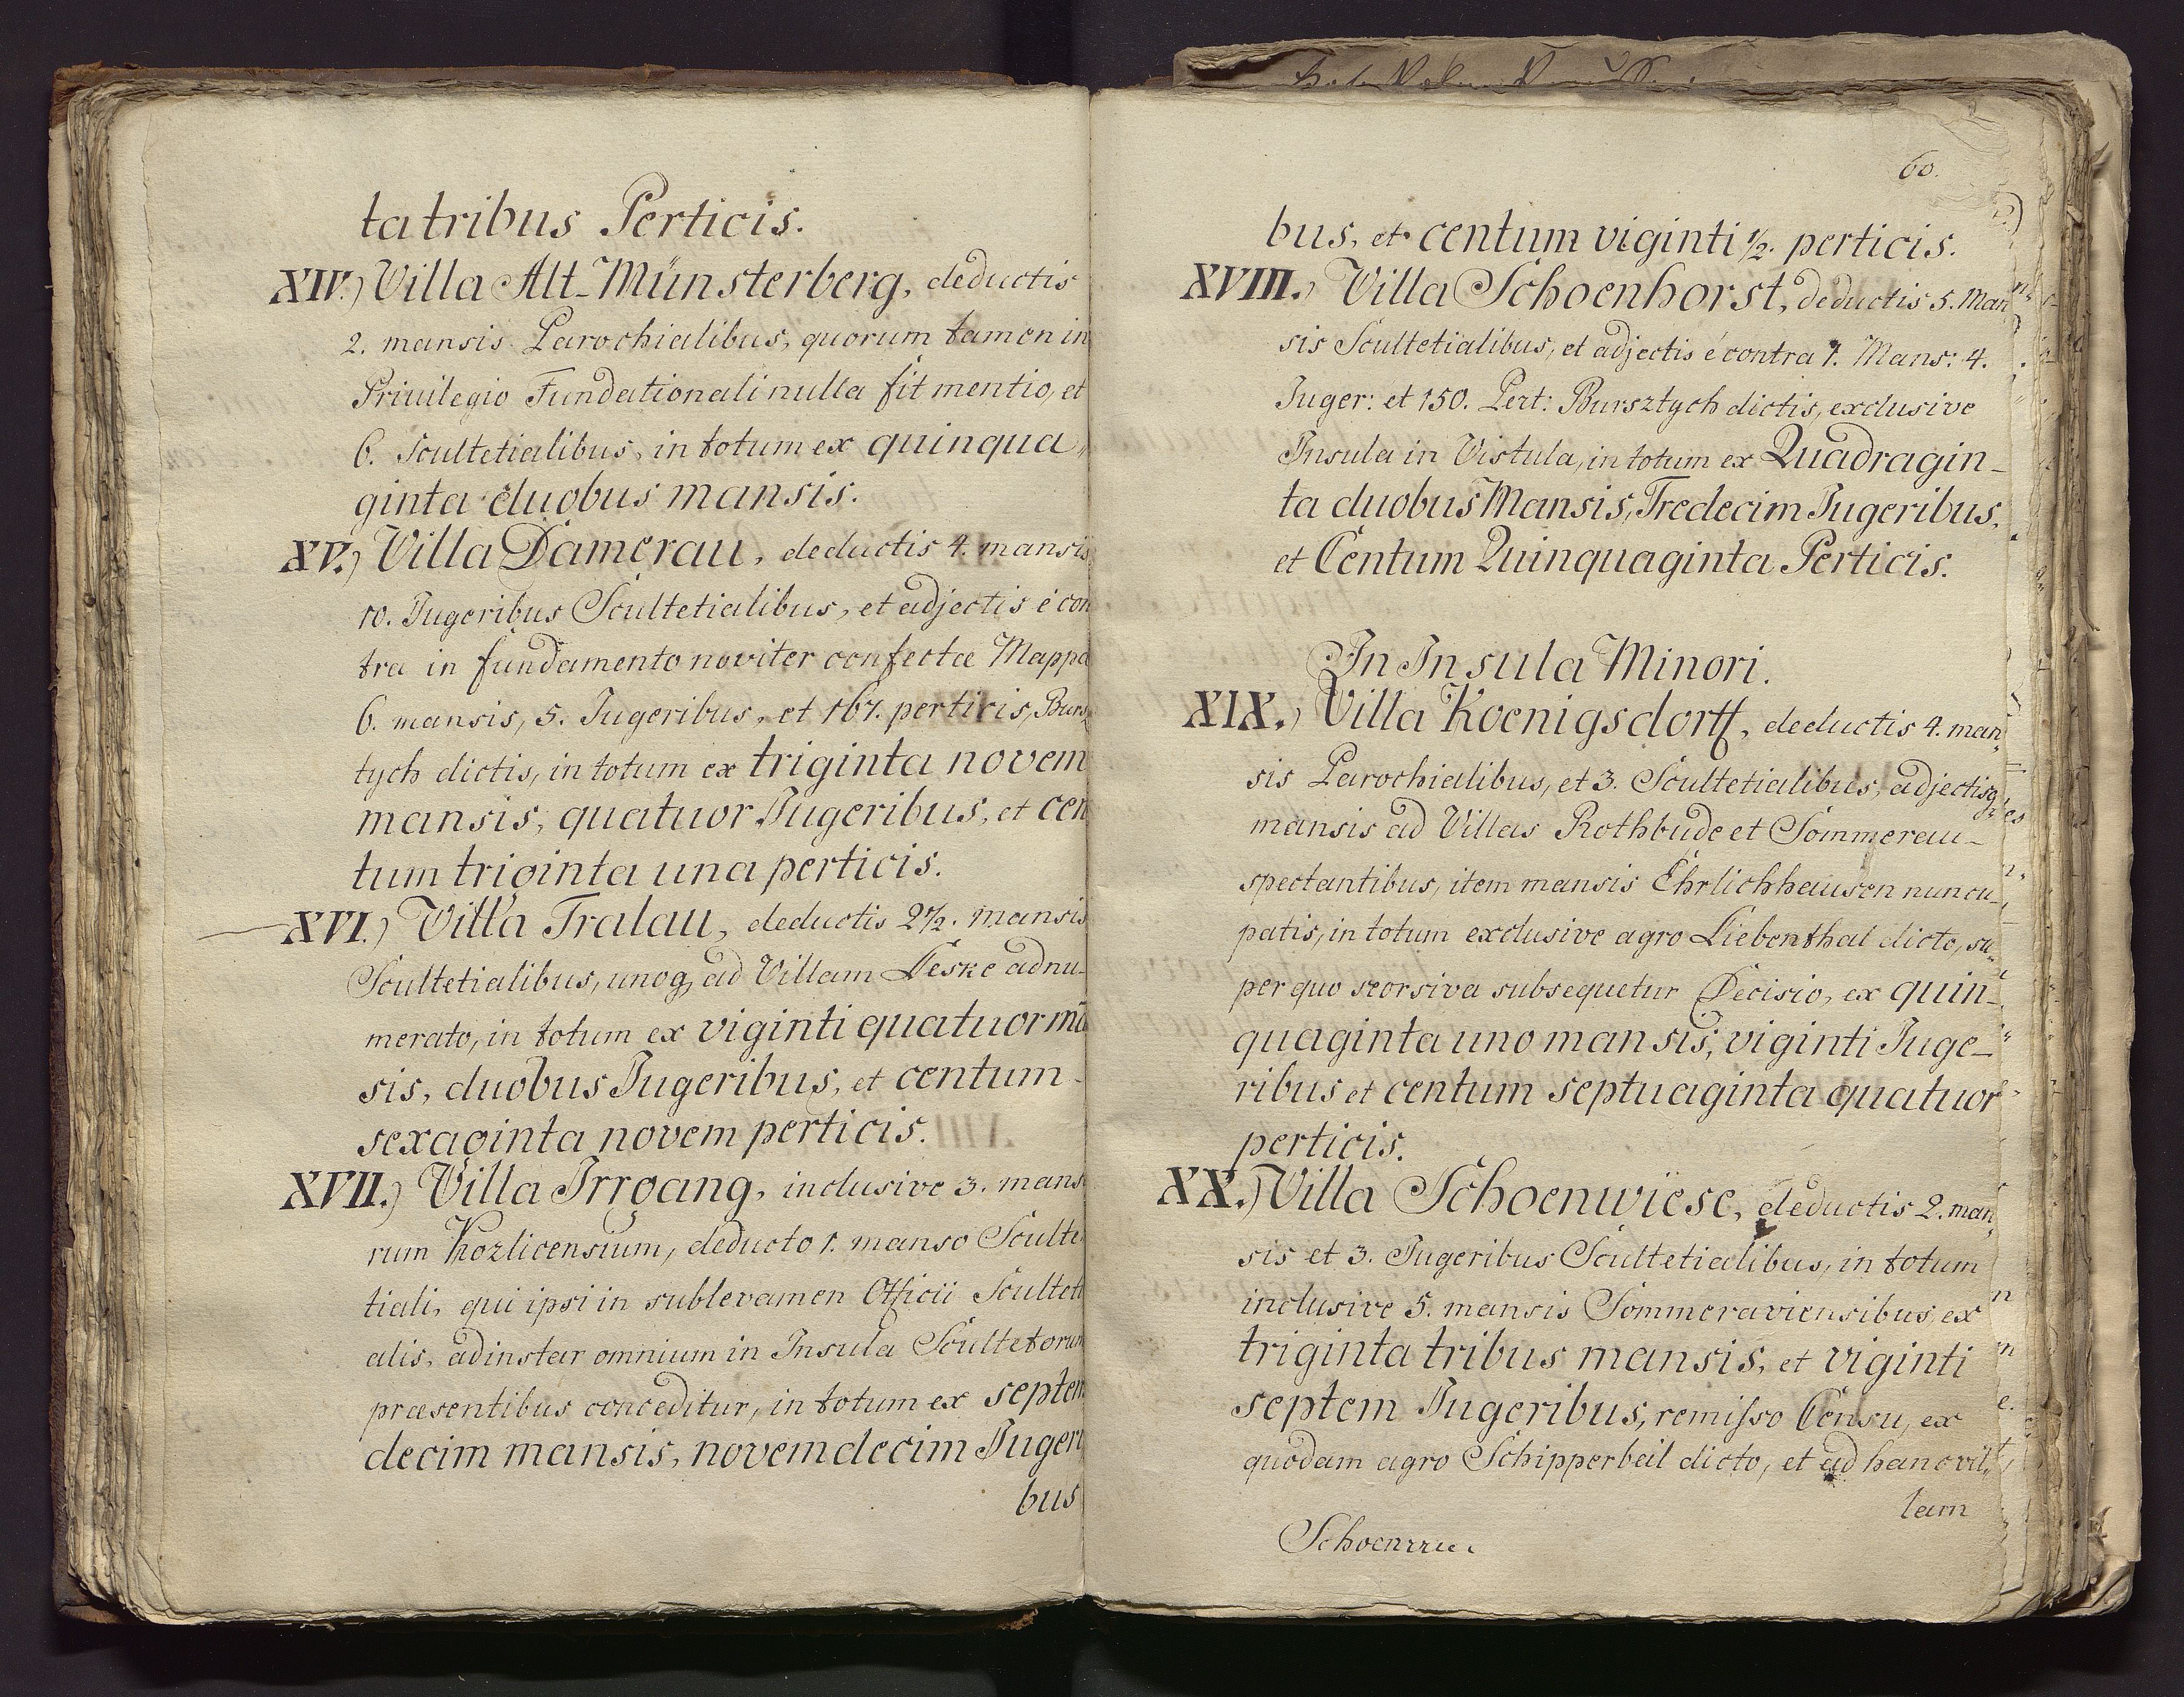 ta tribus Perticis.
XIV.) Villa Alt-Münsterberg, deductis
2. mansis Parochialibus, quorum tamen in
Privilegio Fundationali nulla fit mentio, et
6. Scultetialibus, in totum ex quinqua
ginta duobus mansis.
XV.) Villa Damerau, deductis 4. mansis
10. Jugeribus Scultetialibus, et adjectis é con
tra in fundamento noviter confectæ Mappa
6. mansis, 5. Jugeribus, et 167. perticis, Bursz
tych dictis, in totum ex triginta novem
mansis, quatuor Jugeribus, et cen
tum triginta una perticis.
XVI.) Villa Tralau, deductis 2 1/2. mansis
Scultetialibus, unoq, ad Villam Leske adnu-
merato, in totum ex viginti quatuor mā
sis, duobus Jugeribus, et centum
sexaginta novem perticis.
XVII.) Villa Irrgang, inclusive 3. mans
rum Kozlicensium, deducto 1. manso Sculte
tiali, qui ipsi in sublevamen Officii Sculteti
alis, adinstar omnium in Insula Scultetorum
præsentibus conceditur, in totum ex septem
decim mansis, novemdecim Jugeri
bus
60.
bus, et centum viginti 1/2. perticis.
XVIII.) Villa Schoenhorst, deductis 5. Man
sis Scultetialibus, et adjectis é contra 1. Mans: 4.
Juger: et 150. Pert: Bursztych dictis, exclusive
Insula in Vistula, in totum ex Quadragin-
ta duobus Mansis, Tredecim Jugeribus,
et Centum Quinquaginta Perticis.
In Insula Minori.
XIX.) Villa Koenigsdorff, deductis 4. man
sis Parochialibus, et 3. Scultetialibus, adjectisq,
mansis ad Villas Rothbude et Sommerau-
spectantibus, item mansis Ehrlichhausen nuncu-
patis, in totum exclusive agro Liebenthal dicto, su-
per quo seorsiva subsequetur Decisio, ex quin-
quaginta uno mansis, viginti Juge-
ribus et centum septuaginta quatuor
perticis.
XX.) Villa Schoenwiese, deductis 2. man
sis et 3. Jugeribus Scultetialibus, in totum
inclusive 5. mansis Sommeraviensibus, ex
triginta tribus mansis, et viginti
septem Jugeribus, remisso Censu, ex
quodam agro Schipperbeil dicto, et ad hanc vil-
lam